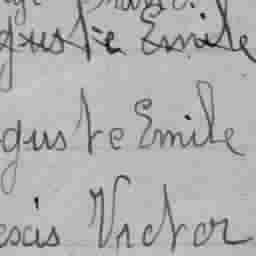 guste Emile
guste Emile
exis Victor